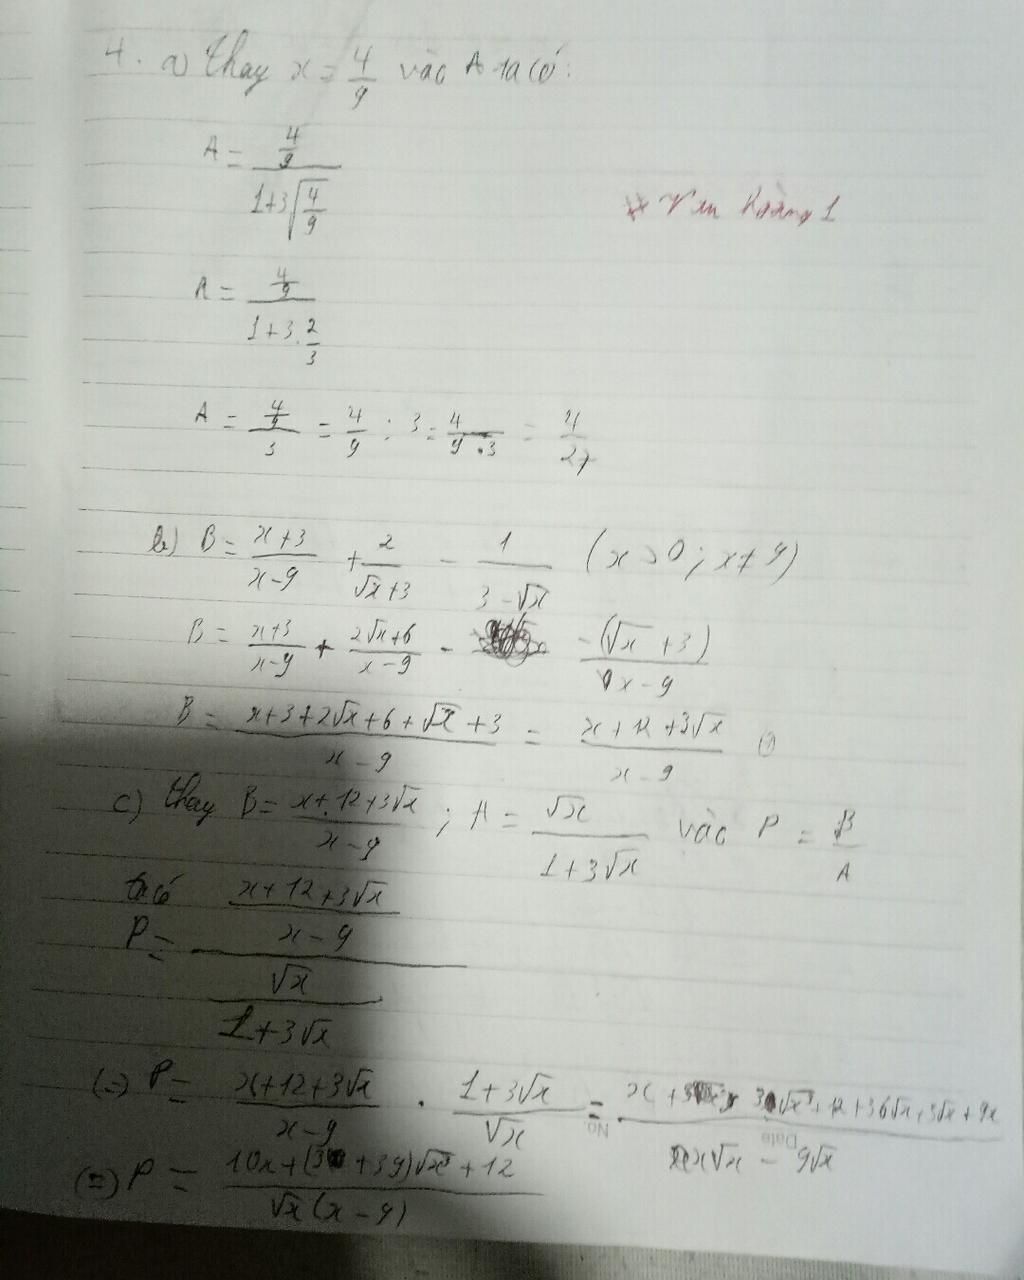 4. a) Thay x = 4/9 vào A ta có:
A = (4/9)/(1+3√(4/9))
A = (4/9)/(1+3.2/3)
A = (4/9)/3 = 4/9 : 3 = 4/(9.3) = 4/27
b) B = (x+3)/(x-9) + 2/(√x+3) - 1/(3-√x) (x > 0; x ≠ 9)
B = (x+3)/(x-9) + (2√x+6)/(x-9) - -(√x+3)/(x-9)
B = (x+3+2√x+6+√x+3)/(x-9) = (x+12+3√x)/(x-9)
c) Thay B = (x+12+3√x)/(x-9); A = √x/(1+3√x) vào P = B/A
ta có
P = ((x+12+3√x)/(x-9))/(√x/(1+3√x))
(=) P = (x+12+3√x)/(x-9) . (1+3√x)/√x = (x + 3√x³ + 12 + 36√x + 3√x + 9x)/(x√x - 9√x)
(=) P = (10x+(3 +39)√x+12)/(√x(x-9))
No
Date